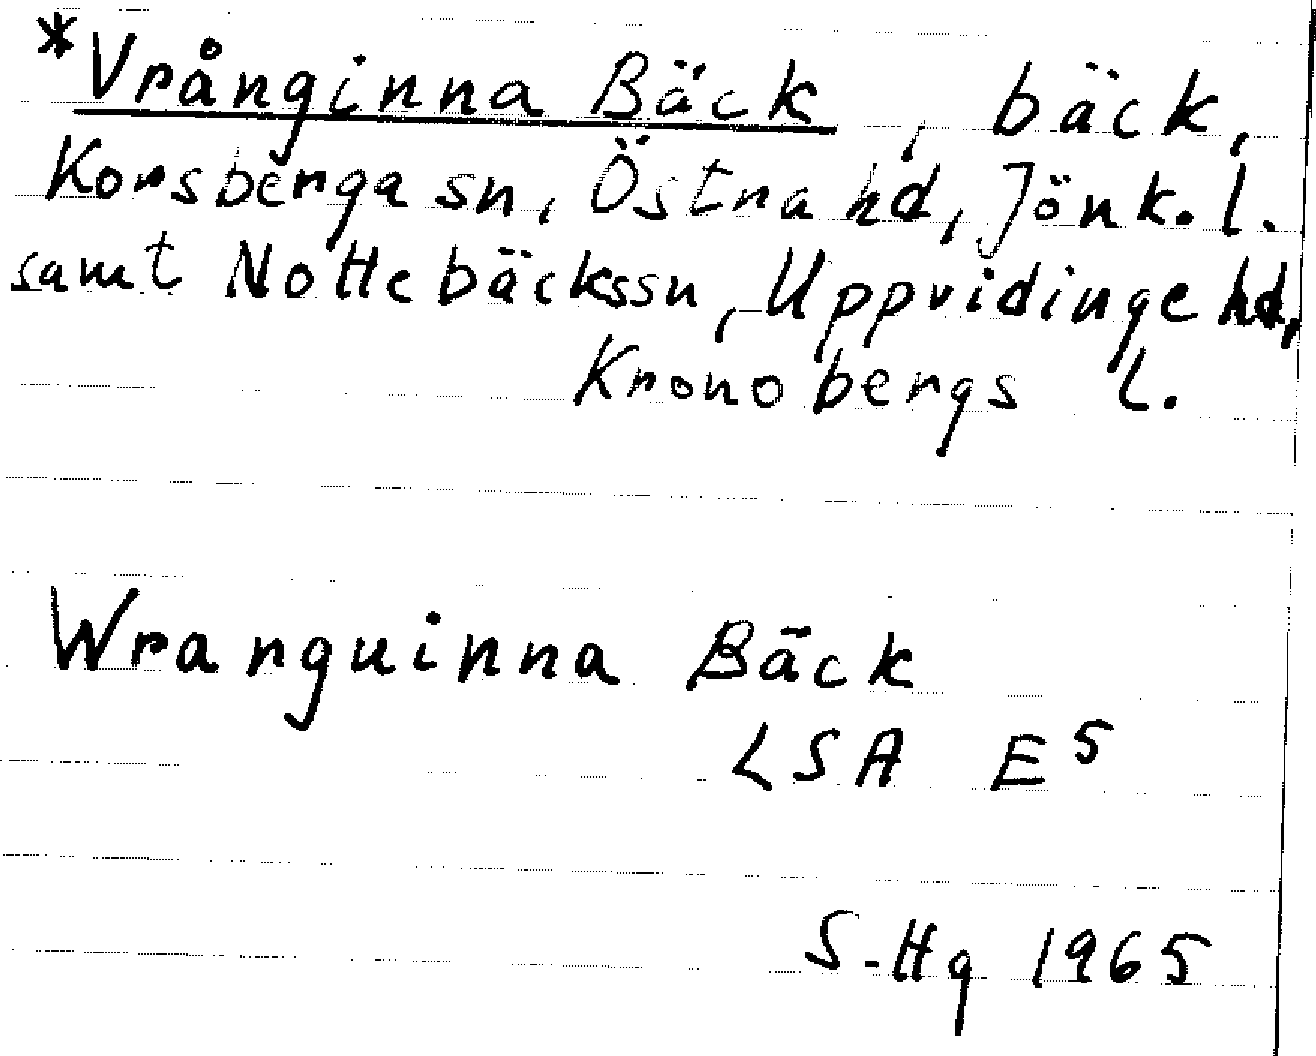 *Vrånginna Bäck, bäck,
Korsberga sn, Östra hd, Jönk. l.
samt Nottebäckssn, Uppvidinge hd,
Kronobergs l.
Wranguinna Bäck
LSA E5
S-Hg 1965